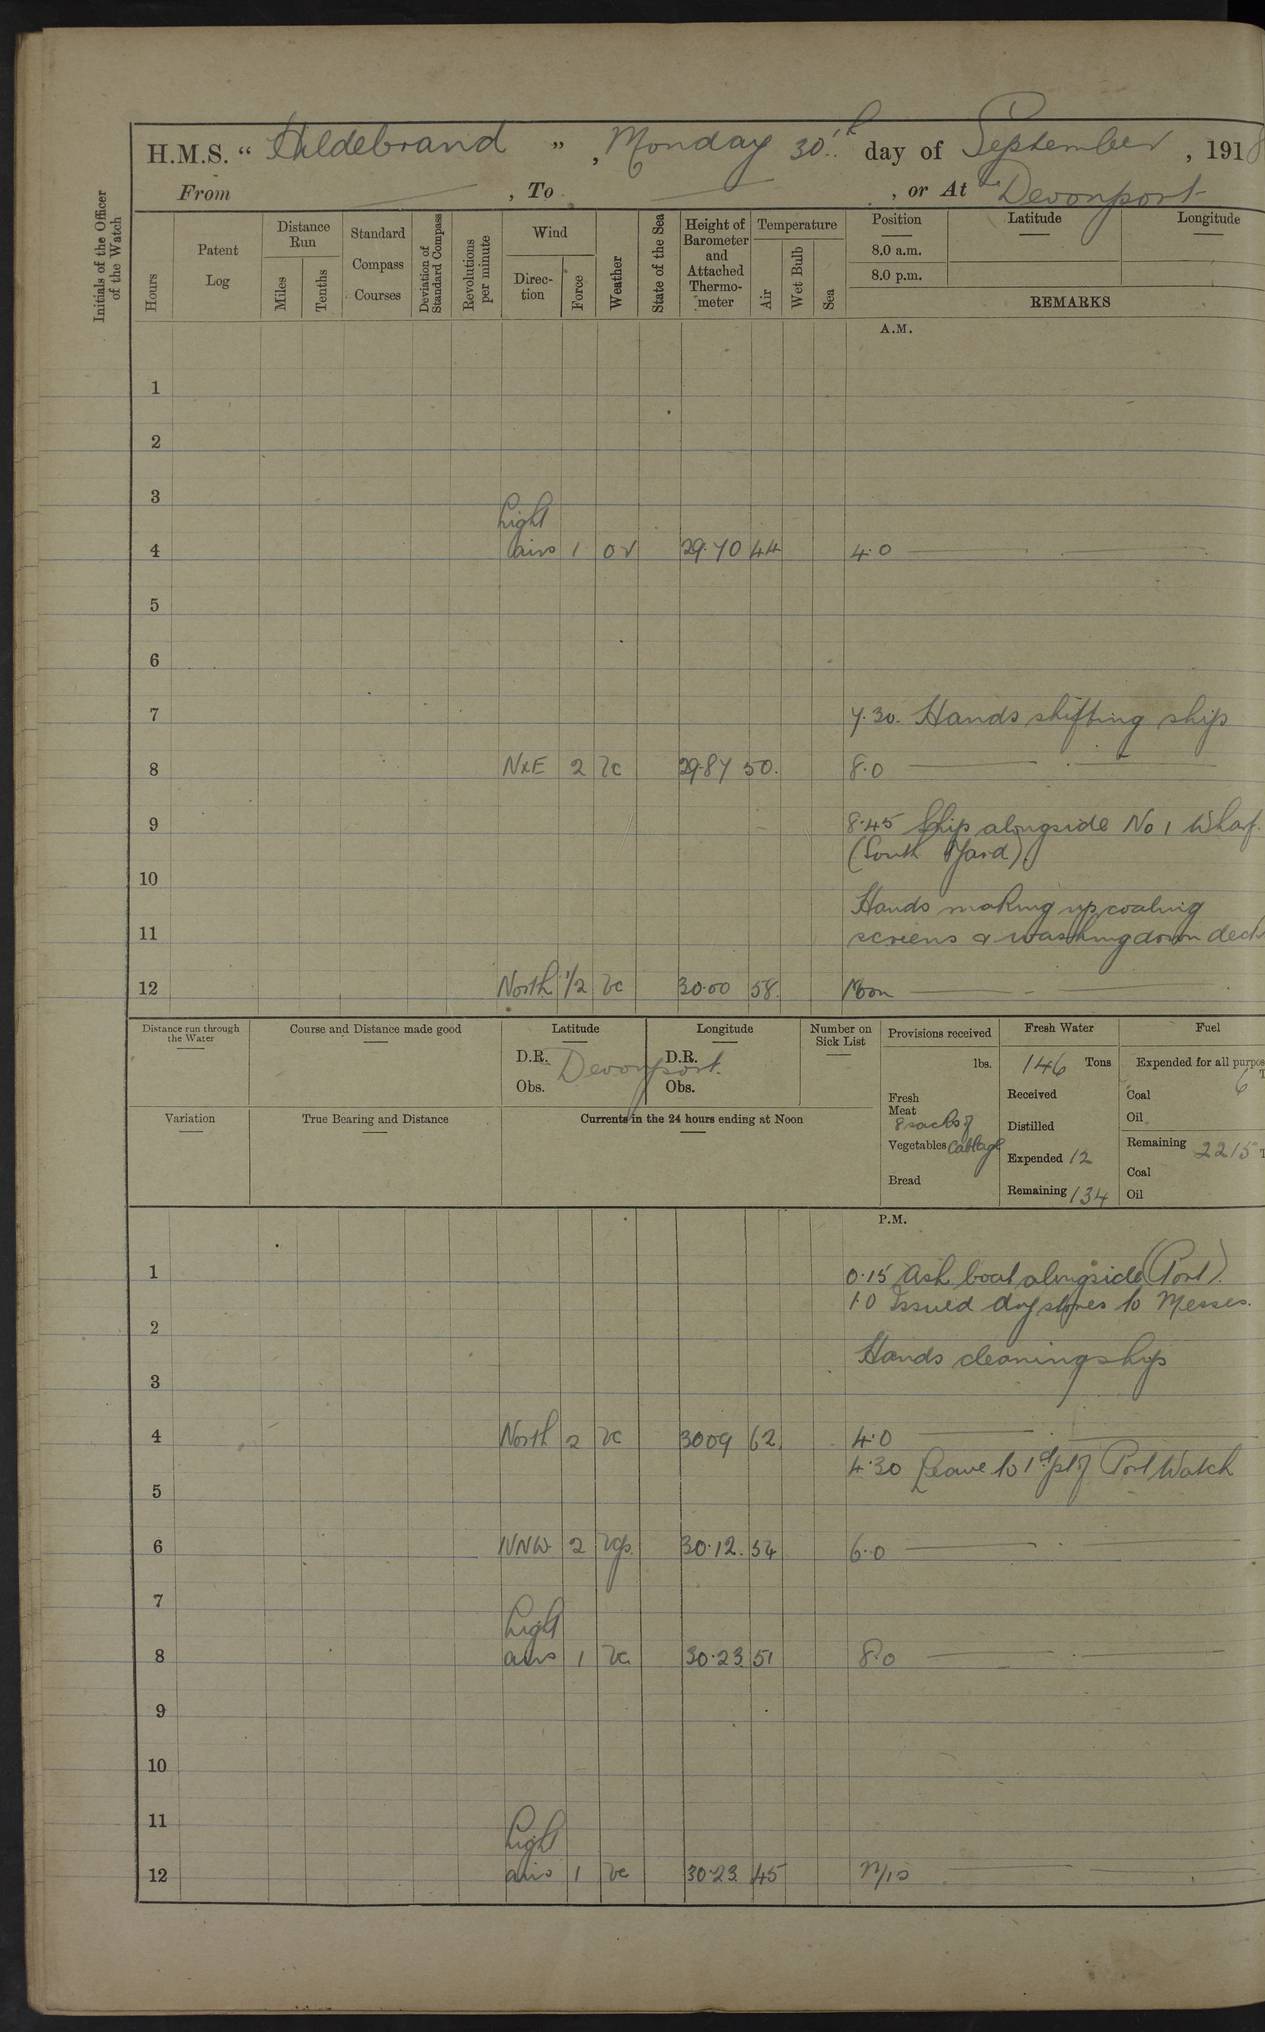 H.M.S. " Hildebrand ", Monday 30th day of September, 1918
From — , To — , or At Devonport
Initials of the Officer of the Watch
Hours
Patent Log
Distance Run
Miles
Tenths
Standard Compass Courses
Deviation of Standard Compass
Revolutions per minute
Wind
Direction
Force
Weather
State of the Sea
Height of Barometer and Attached Thermometer
Temperature
Air
Wet Bulb
Sea
Position Latitude Longitude
8.0 a.m.
8.0 p.m.
REMARKS
A.M.
1
2
3
4 Light airs 1 29.70 44 4.0 —
5
6
7 7.30. Hands shifting ship
8 NxE 2 29.87 50. 8.0 —
9 8.45 Ship alongside No 1 Wharf.
(South Yard)
10 Hands making up coaling
11 screens & washing down deck
12 North 1/2 30.00 58. Noon —
Distance run through the Water
Course and Distance made good
Latitude
D.R.
Obs.
Devonport.
Longitude
D.R.
Obs.
Number on Sick List
Provisions received
lbs.
Fresh Meat
8 sacks of
Vegetables Cabbage
Bread
Fresh Water
146 Tons
Received
Distilled
Expended 12
Remaining 134
Fuel
Expended for all purpos
6 T
Coal
Oil
Remaining 2215 T
Coal
Oil
Variation
True Bearing and Distance
Currents in the 24 hours ending at Noon
P.M.
1 0.15 Ash boat alongside (Port).
1.0 Issued dry stores to Messes.
2 Hands cleaning ship
3
4 North 2 30.09 62. 4.0 —
4.30 Leave to 1st pt of Port Watch
5
6 NNW 2 30.12. 54 6.0 —
7
8 Light airs 1 30.23 51 8.0 —
9
10
11
12 Light airs 1 30.23 45